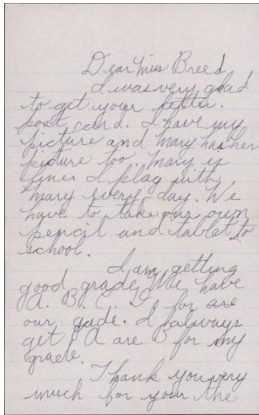 Dear Miss Breed
I was very glad
to get your letter.
post card. I have my
picture and Mary has her
picture too. Mary is
fine. I play with
Mary every day. We
have to take our own
pencil and tablet to
school.
I am getting
good grade. We have
A. B. C. for are
our gade. I always
get A are B for my
grade.
Thank you very
much for your the